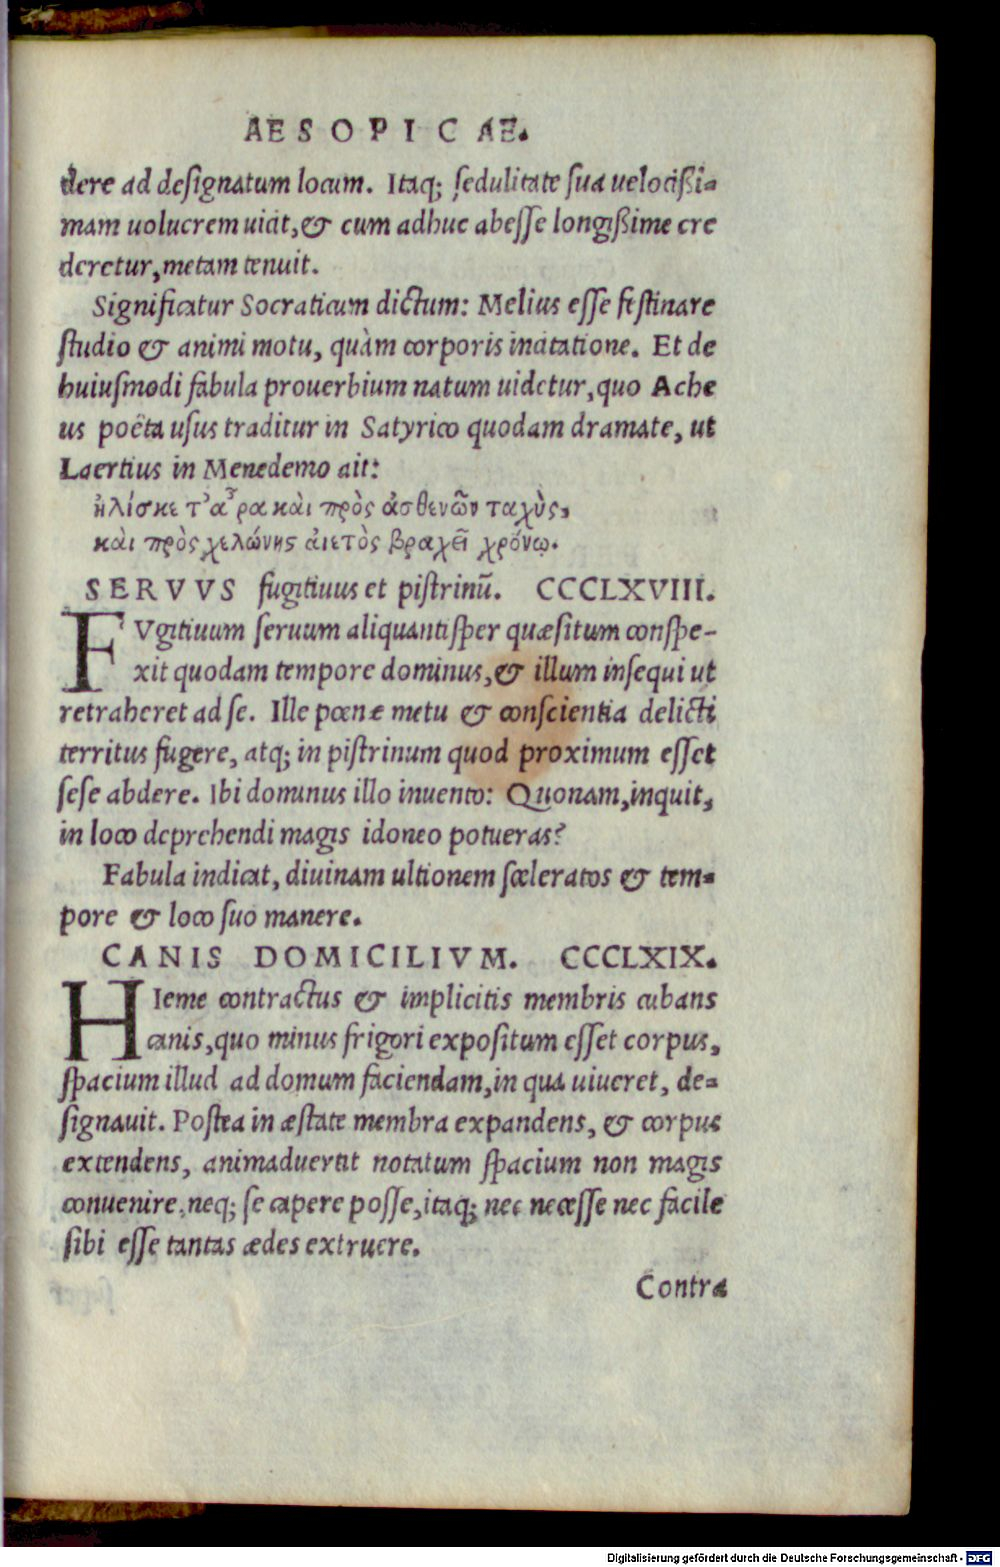 AESOPICAE.
dere ad designatum locum. Itaq; sedulitate sua uelocißi-
mam uolucrem uicit, & cum adhuc abesse longißime cre
deretur, metam tenuit.
Significatur Socraticum dictum: Melius esse festinare
studio & animi motu, quàm corporis incitatione. Et de
huiusmodi fabula prouerbium natum uidetur, quo Ache
us poëta usus traditur in Satyrico quodam dramate, ut
Laertius in Menedemo ait:
ἡλίσκετ' ἆρα καὶ πρὸς ἀσθενῶν ταχὺς,
καὶ πρὸς χελώνης ἀιετὸς βραχεῖ χρόνῳ.
SERVVS fugitiuus et pistrinū. CCCLXVIII.
FVgitiuum seruum aliquantisper quæsitum conspe-
xit quodam tempore dominus, & illum insequi ut
retraheret ad se. Ille pœnæ metu & conscientia delicti
territus fugere, atq; in pistrinum quod proximum esset
sese abdere. Ibi dominus illo inuento: Quonam, inquit,
in loco deprehendi magis idoneo potueras?
Fabula indicat, diuinam ultionem sceleratos & tem-
pore & loco suo manere.
CANIS DOMICILIVM. CCCLXIX.
HIeme contractus & implicitis membris cubans
canis, quo minus frigori expositum esset corpus,
spacium illud ad domum faciendam, in qua uiueret, de-
signauit. Postea in æstate membra expandens, & corpus
extendens, animaduertit notatum spacium non magis
conuenire, neq; se capere posse, itaq; nec necesse nec facile
sibi esse tantas ædes extruere.
Contra
Digitalisierung gefördert durch die Deutsche Forschungsgemeinschaft - DFG